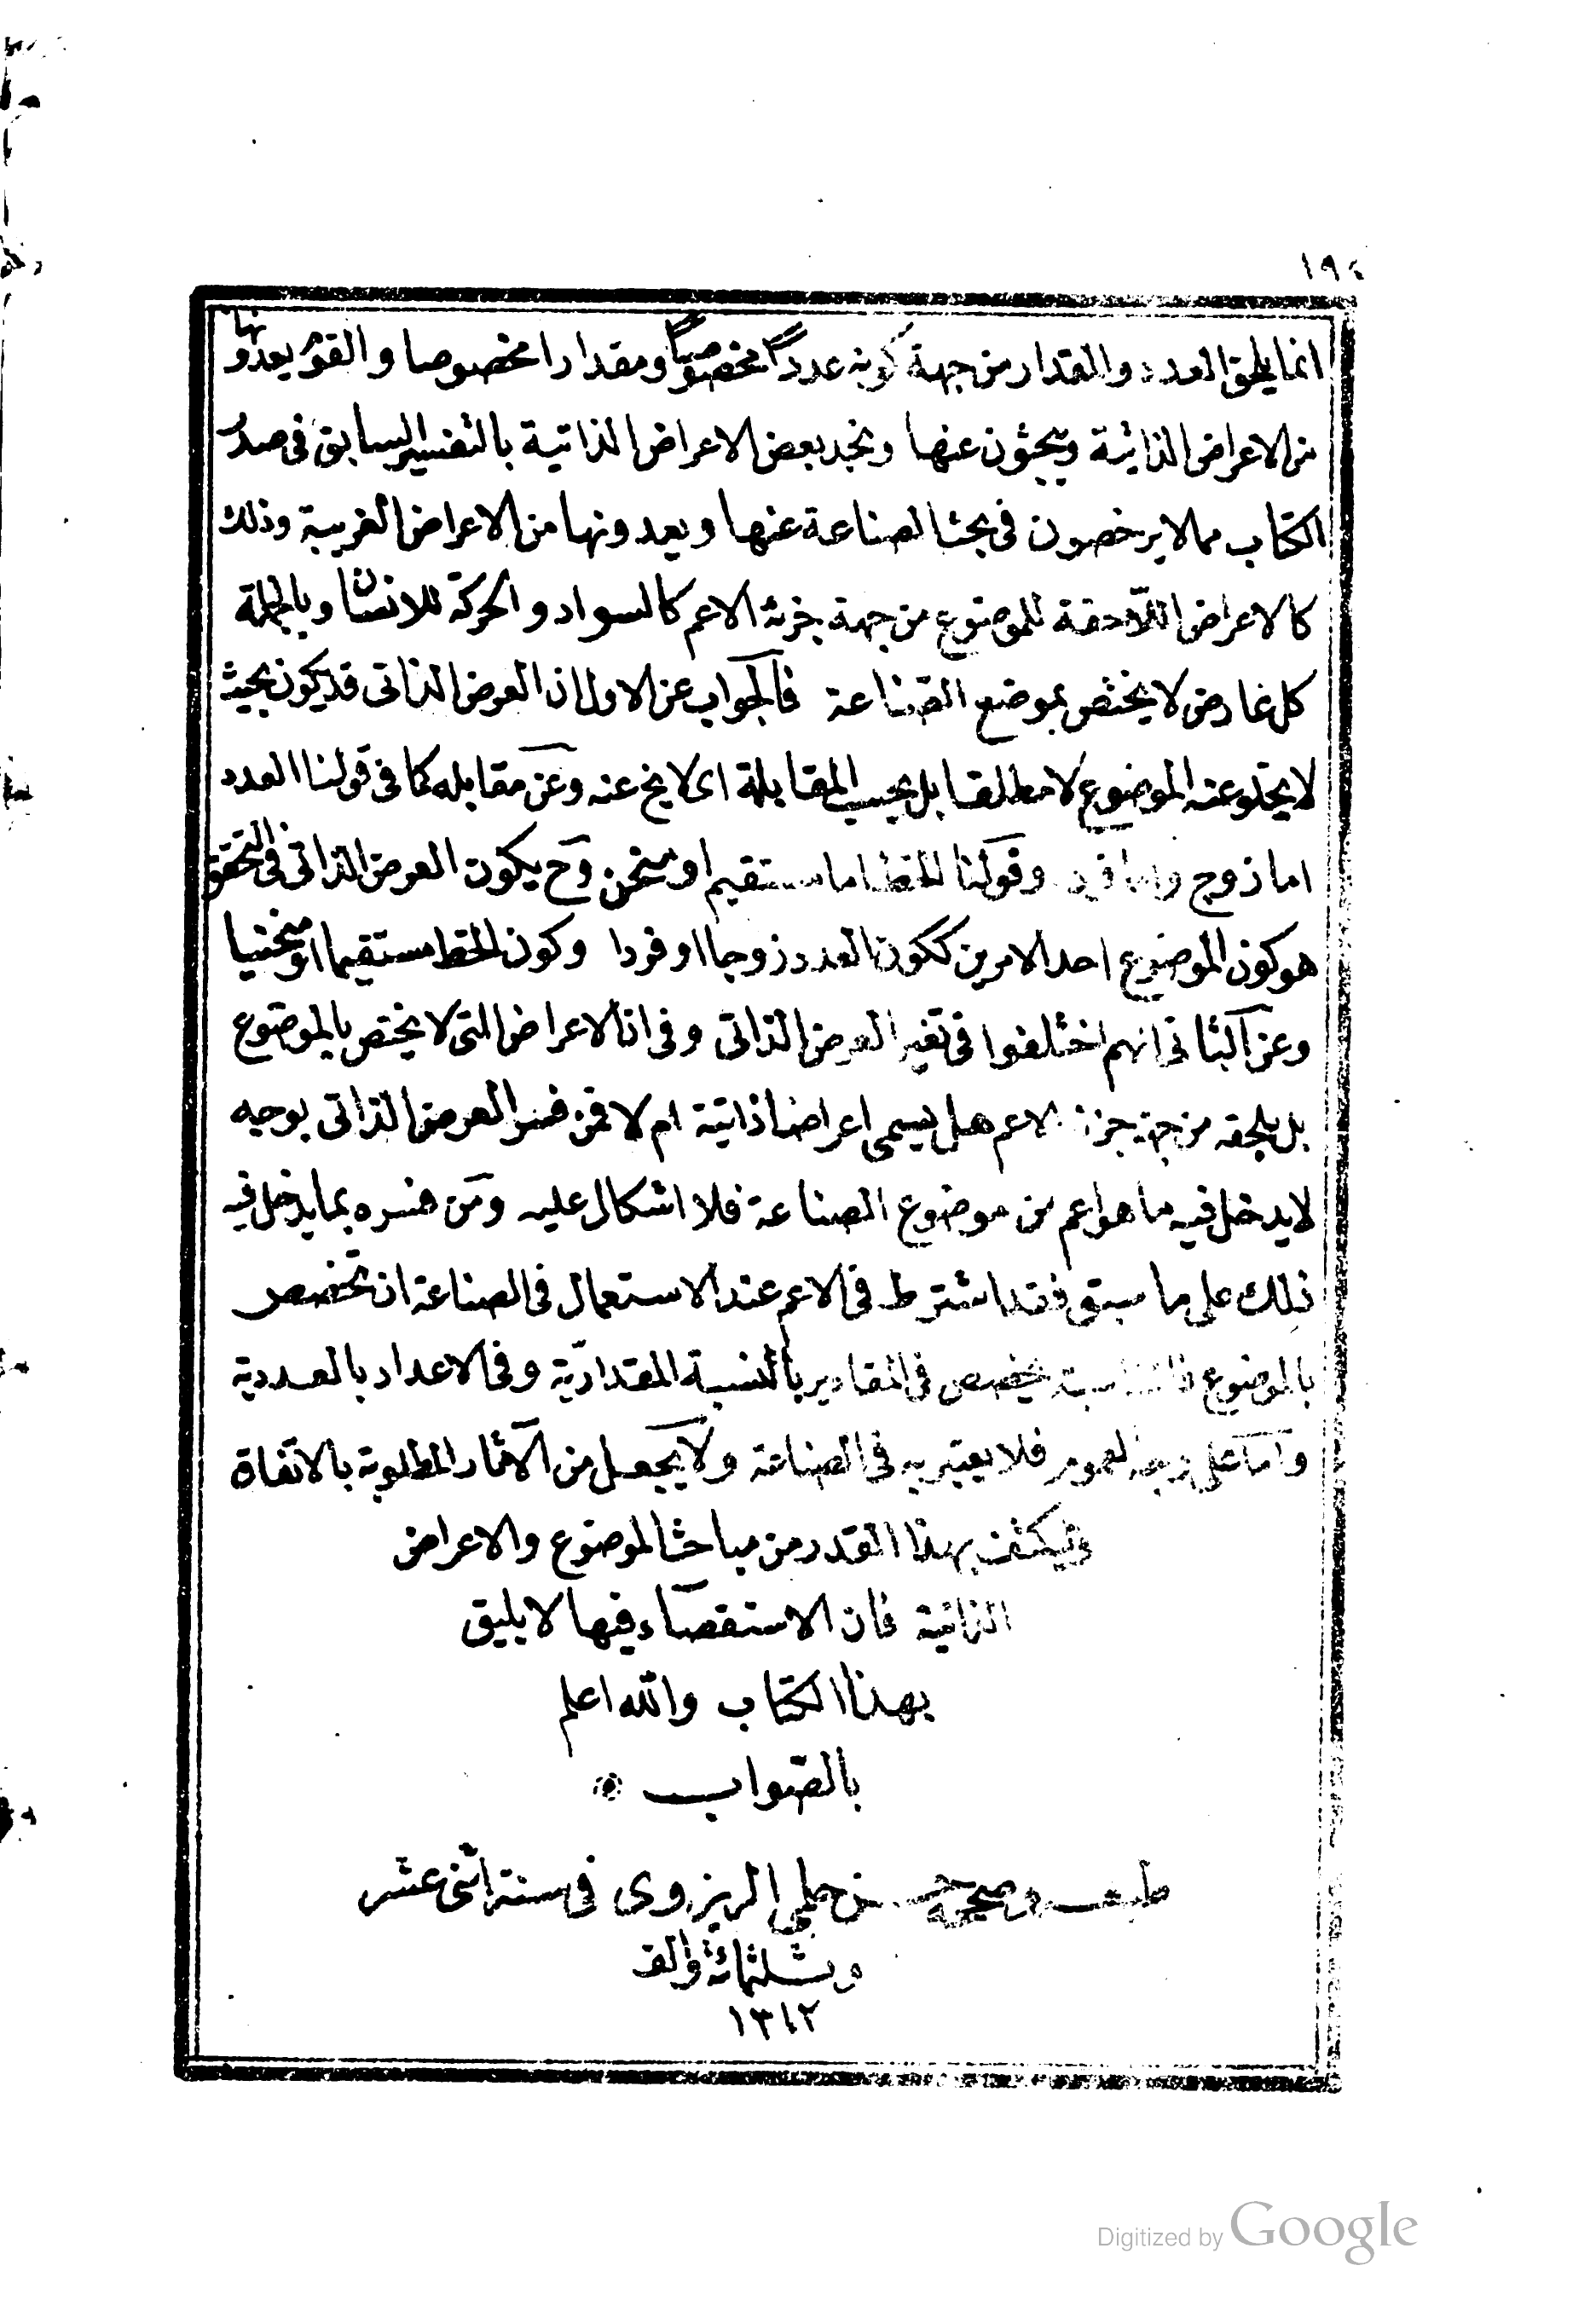 ١٩٤
انما يلحق العدد والمقدار من جهة كونه عددًا مخصوصًا ومقدارا مخصوصا والقوم يعدونها
من الاعراض الذاتية ويبحثون عنها ونجد بعض الاعراض الذاتية بالتفسير السابق فى صدر
الكتاب مما لا يرخصون فى بحث الصناعة عنها ويعدونها من الاعراض الغريبة وذلك
كالاعراض اللاحقة للموضوع من جهة جزئه الاعم كالسواد والحركة للانسان وبالجملة
كل عارض لا يختص بموضع الصناعة فالجواب عن الاول ان العرض الذاتى قد يكون بحيث
لا يخلو عنه الموضوع لا مطلقا بل بحسب المقابلة اى لا يخ عنه وعن مقابله كما فى قولنا العدد
اما زوج واما فرد وقولنا الخط اما مستقيم او منحن وح يكون العرض الذاتى فى التحقق
هو كون الموضوع احد الامرين ككون العدد زوجا او فردا وكون الخط مستقيما او منحنيا
وعن الثانى انهم اختلفوا فى تفير العرض الذاتى وفى ان الاعراض التى لا يختص بالموضوع
بل يلحقه من جهة جزئه الاعم هل يسمى اعراضا ذاتية ام لا فمن فسر العرض الذاتى بوجه
لا يدخل فيه ما هو اعم من موضوع الصناعة فلا اشكال عليه ومن فسره بما يدخل فيه
ذلك على ما سبق فقد اشترط فى الاعم عند الاستعمال فى الصناعة ان تخصص
بالموضوع فالمناسبة يخصص فى المقادير بالنسبة المقدارية وفى الاعداد بالعددية
واما على وجه العموم فلا يعتبر به فى الصناعة ولا يجعل من الآثار المطلوبة بالاتفاة
وليكتف بهذا القدر من مباحث الموضوع والاعراض
الذاتية فان الاستقصاء فيها لا يليق
بهذا الكتاب والله اعلم
بالصواب
حلمي الريزوى فى سنة اثنى عشر
وثلثمائة والف
١٣١٢
Digitized by Google